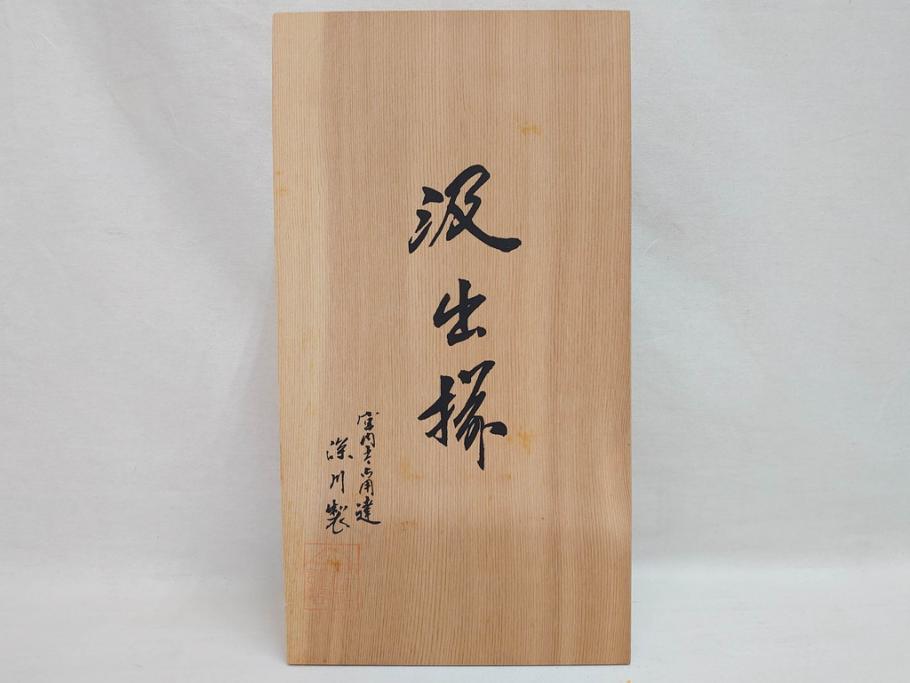 汲出揃
宮内庁御用達
深川製